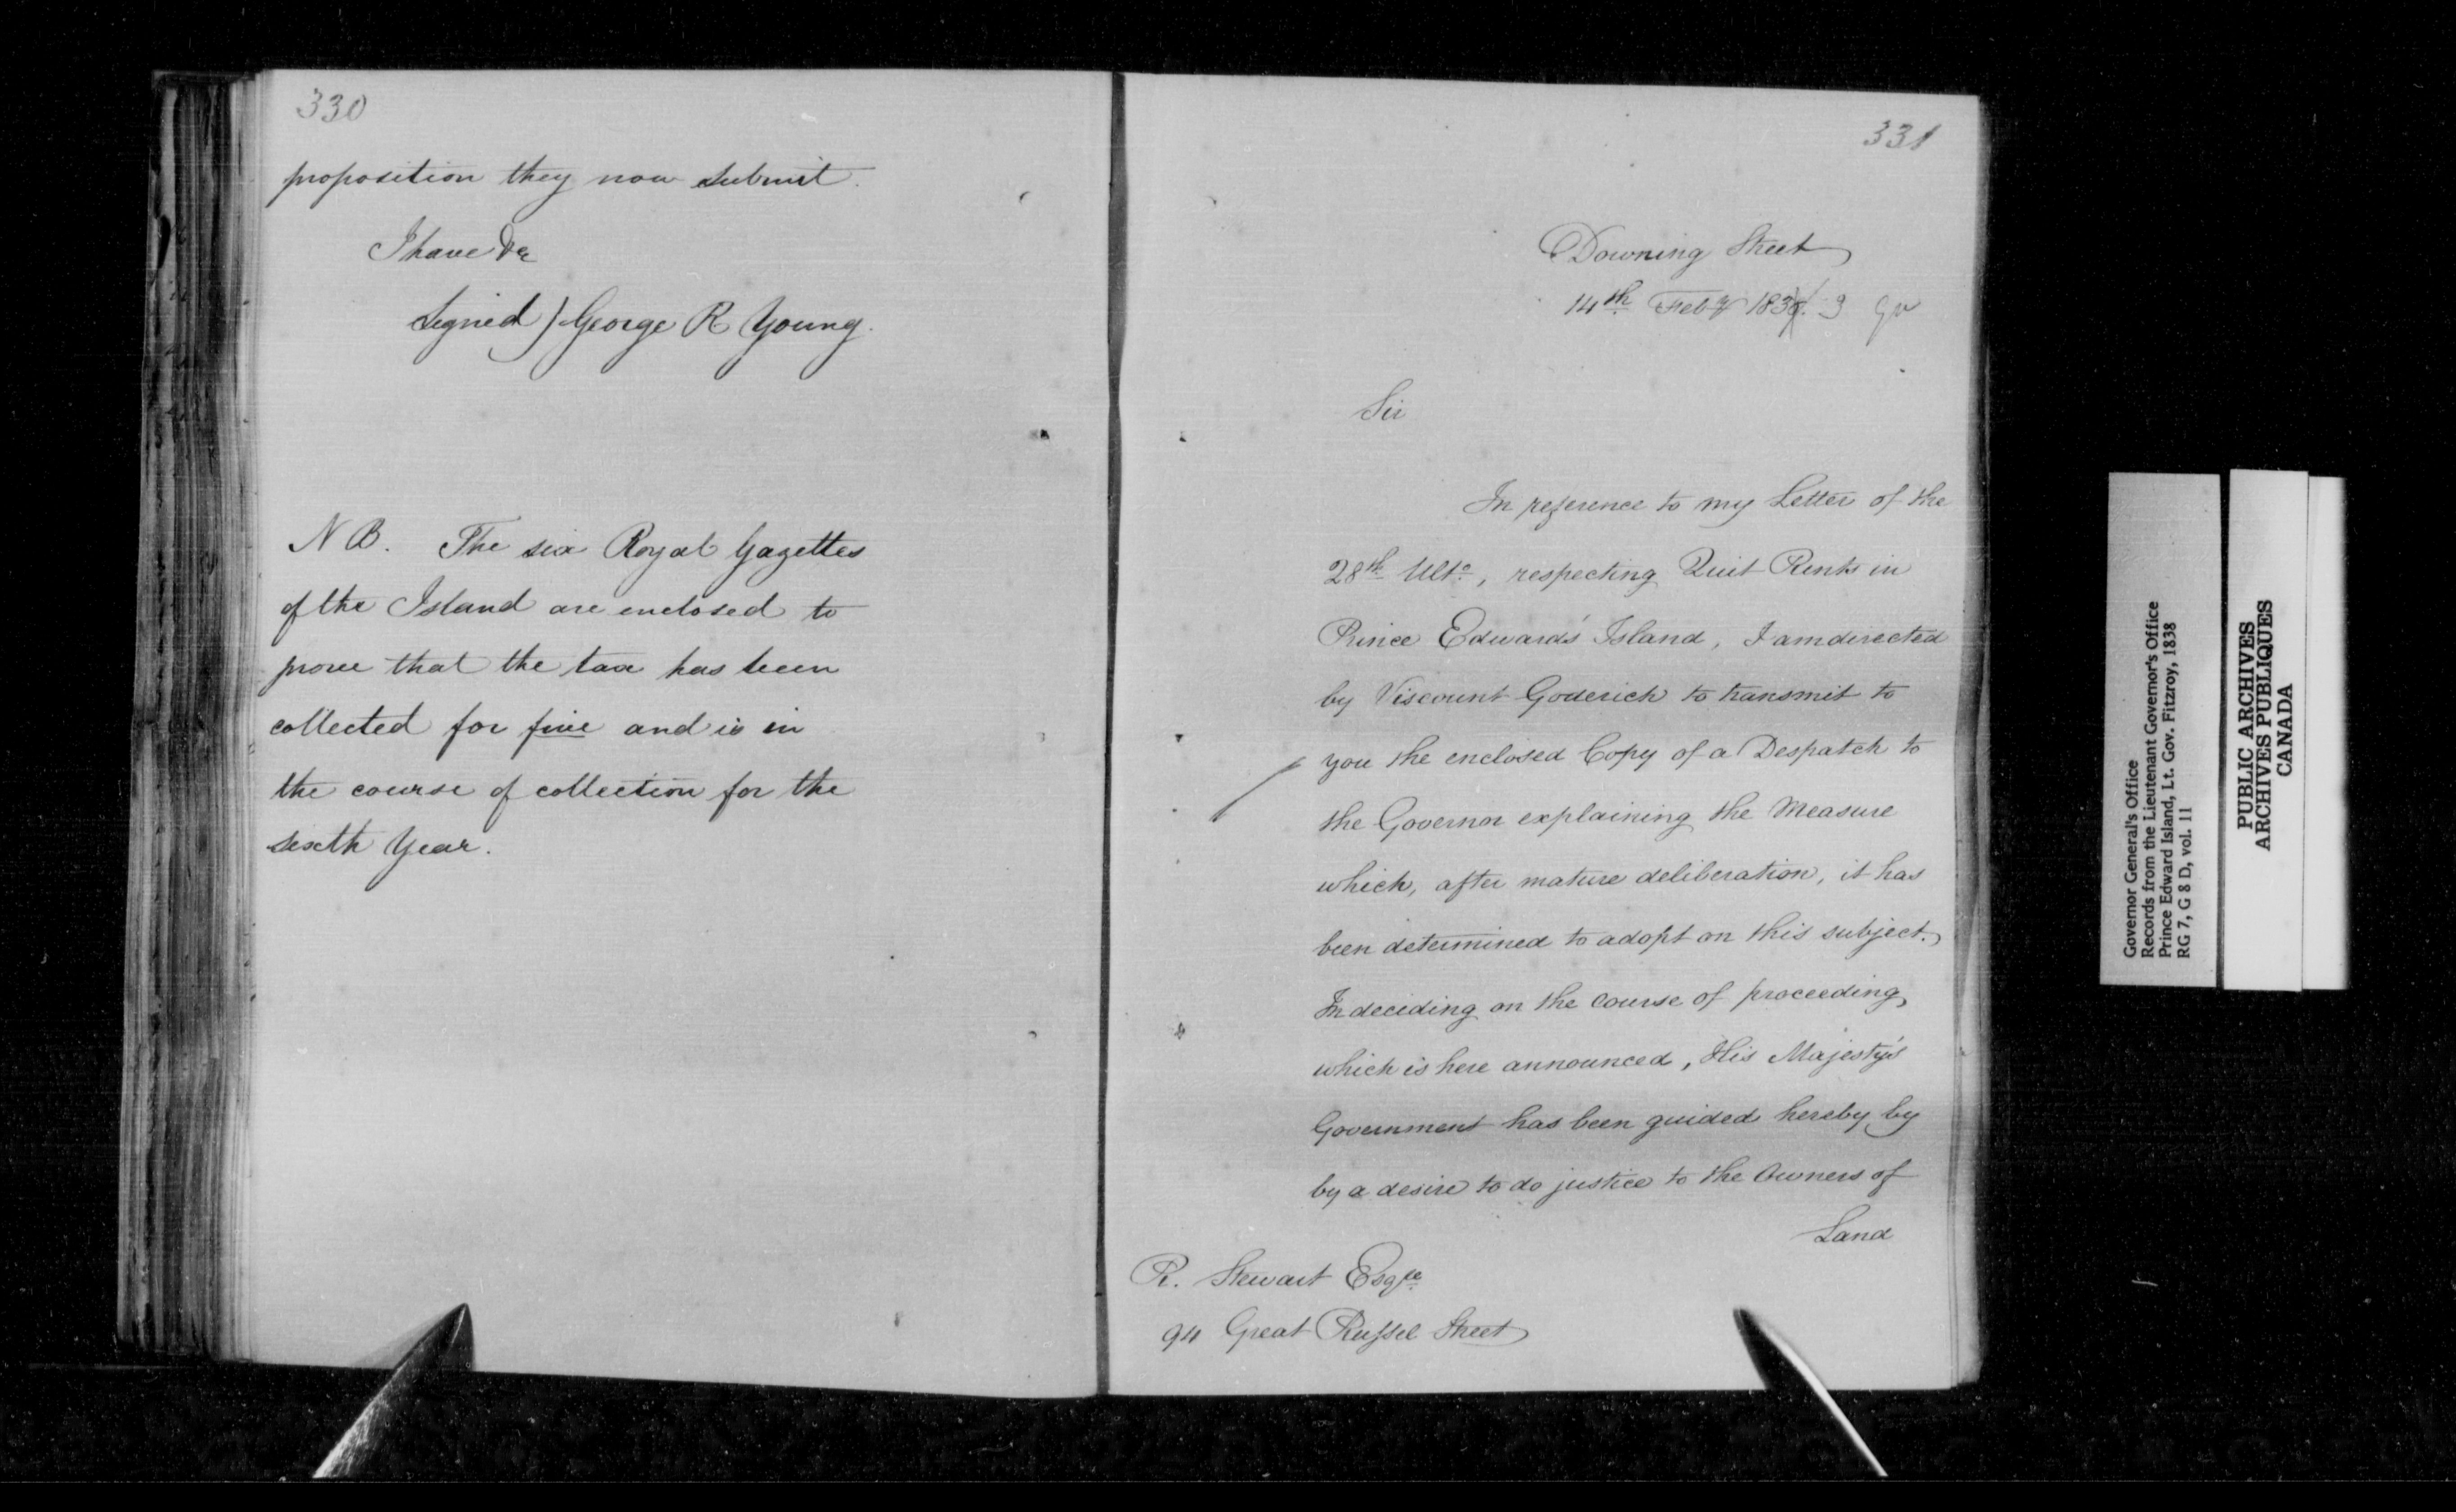 330
proposition they now submit.
I have &c
Signed) George R Young.
N B. The six Royal Gazettes
of the Island are enclosed to
prove that the tax has been
collected for five and is in
the course of collection for the
sixth Year.
331
Downing Street
14th Feby 183
Sir
In reference to my Letter of the
28th Ulto, respecting Quit Rents in
Prince Edward's Island, I am directed
by Viscount Goderich to transmit to
you the enclosed Copy of a Despatch to
the Governor explaining the Measure
which, after mature deliberation, it has
been determined to adopt on this subject.
In deciding on the course of proceeding,
which is here announced, His Majesty's
Government has been guided hereby by
by a desire to do justice to the Owners of
Land
R. Stewart Esqre
94 Great Russel Street
Governor General's Office
Records from the Lieutenant Governor's Office
Prince Edward Island, Lt. Gov. Fitzroy, 1838
RG 7, G 8 D, vol. 11
PUBLIC ARCHIVES
ARCHIVES PUBLIQUES
CANADA